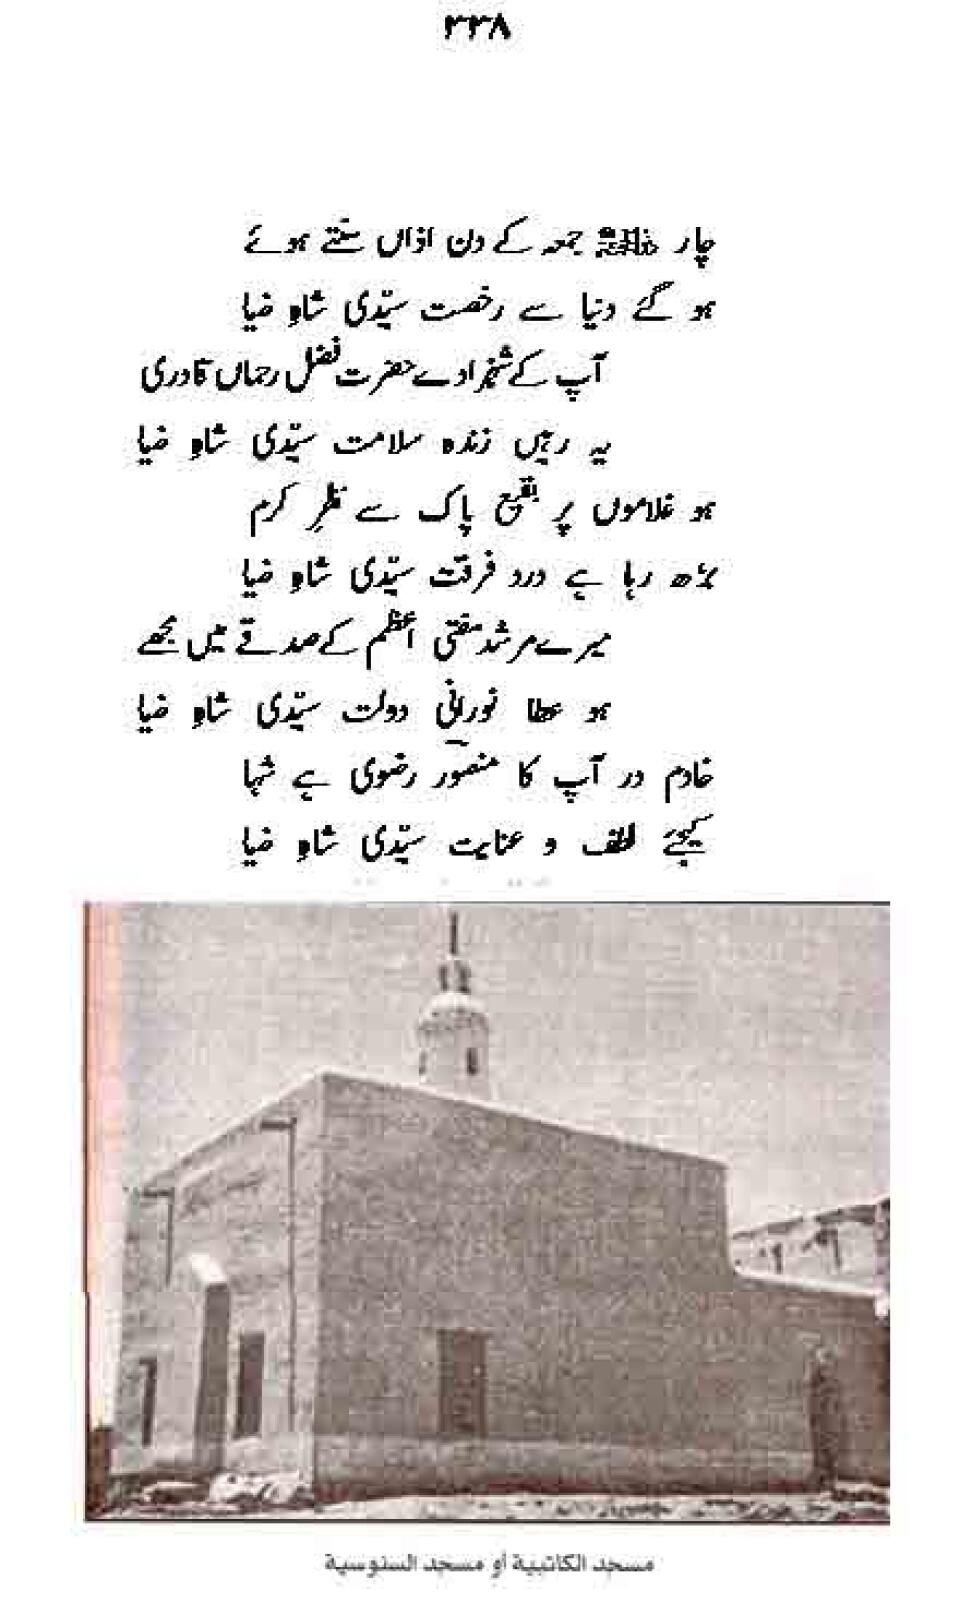 ۳۳۸
چار ذالحجہ جمعہ کے دن اذاں سنتے ہوئے
ہو گئے دنیا سے رخصت سیّدی شاہِ ضیا
آپ کے شہزادے حضرت فضل رحماں قادری
یہ رہیں زندہ سلامت سیّدی شاہِ ضیا
ہو غلاموں پر بقیع پاک سے نظرِ کرم
بڑھ رہا ہے درد فرقت سیّدی شاہِ ضیا
میرے مرشد مفتی اعظم کے صدقے میں مجھے
ہو عطا نورانی دولت سیّدی شاہِ ضیا
خادم در آپ کا منصور رضوی ہے شہا
کیجئے لطف و عنایت سیّدی شاہِ ضیا
مسجد الكاتبية أو مسجد السنوسية